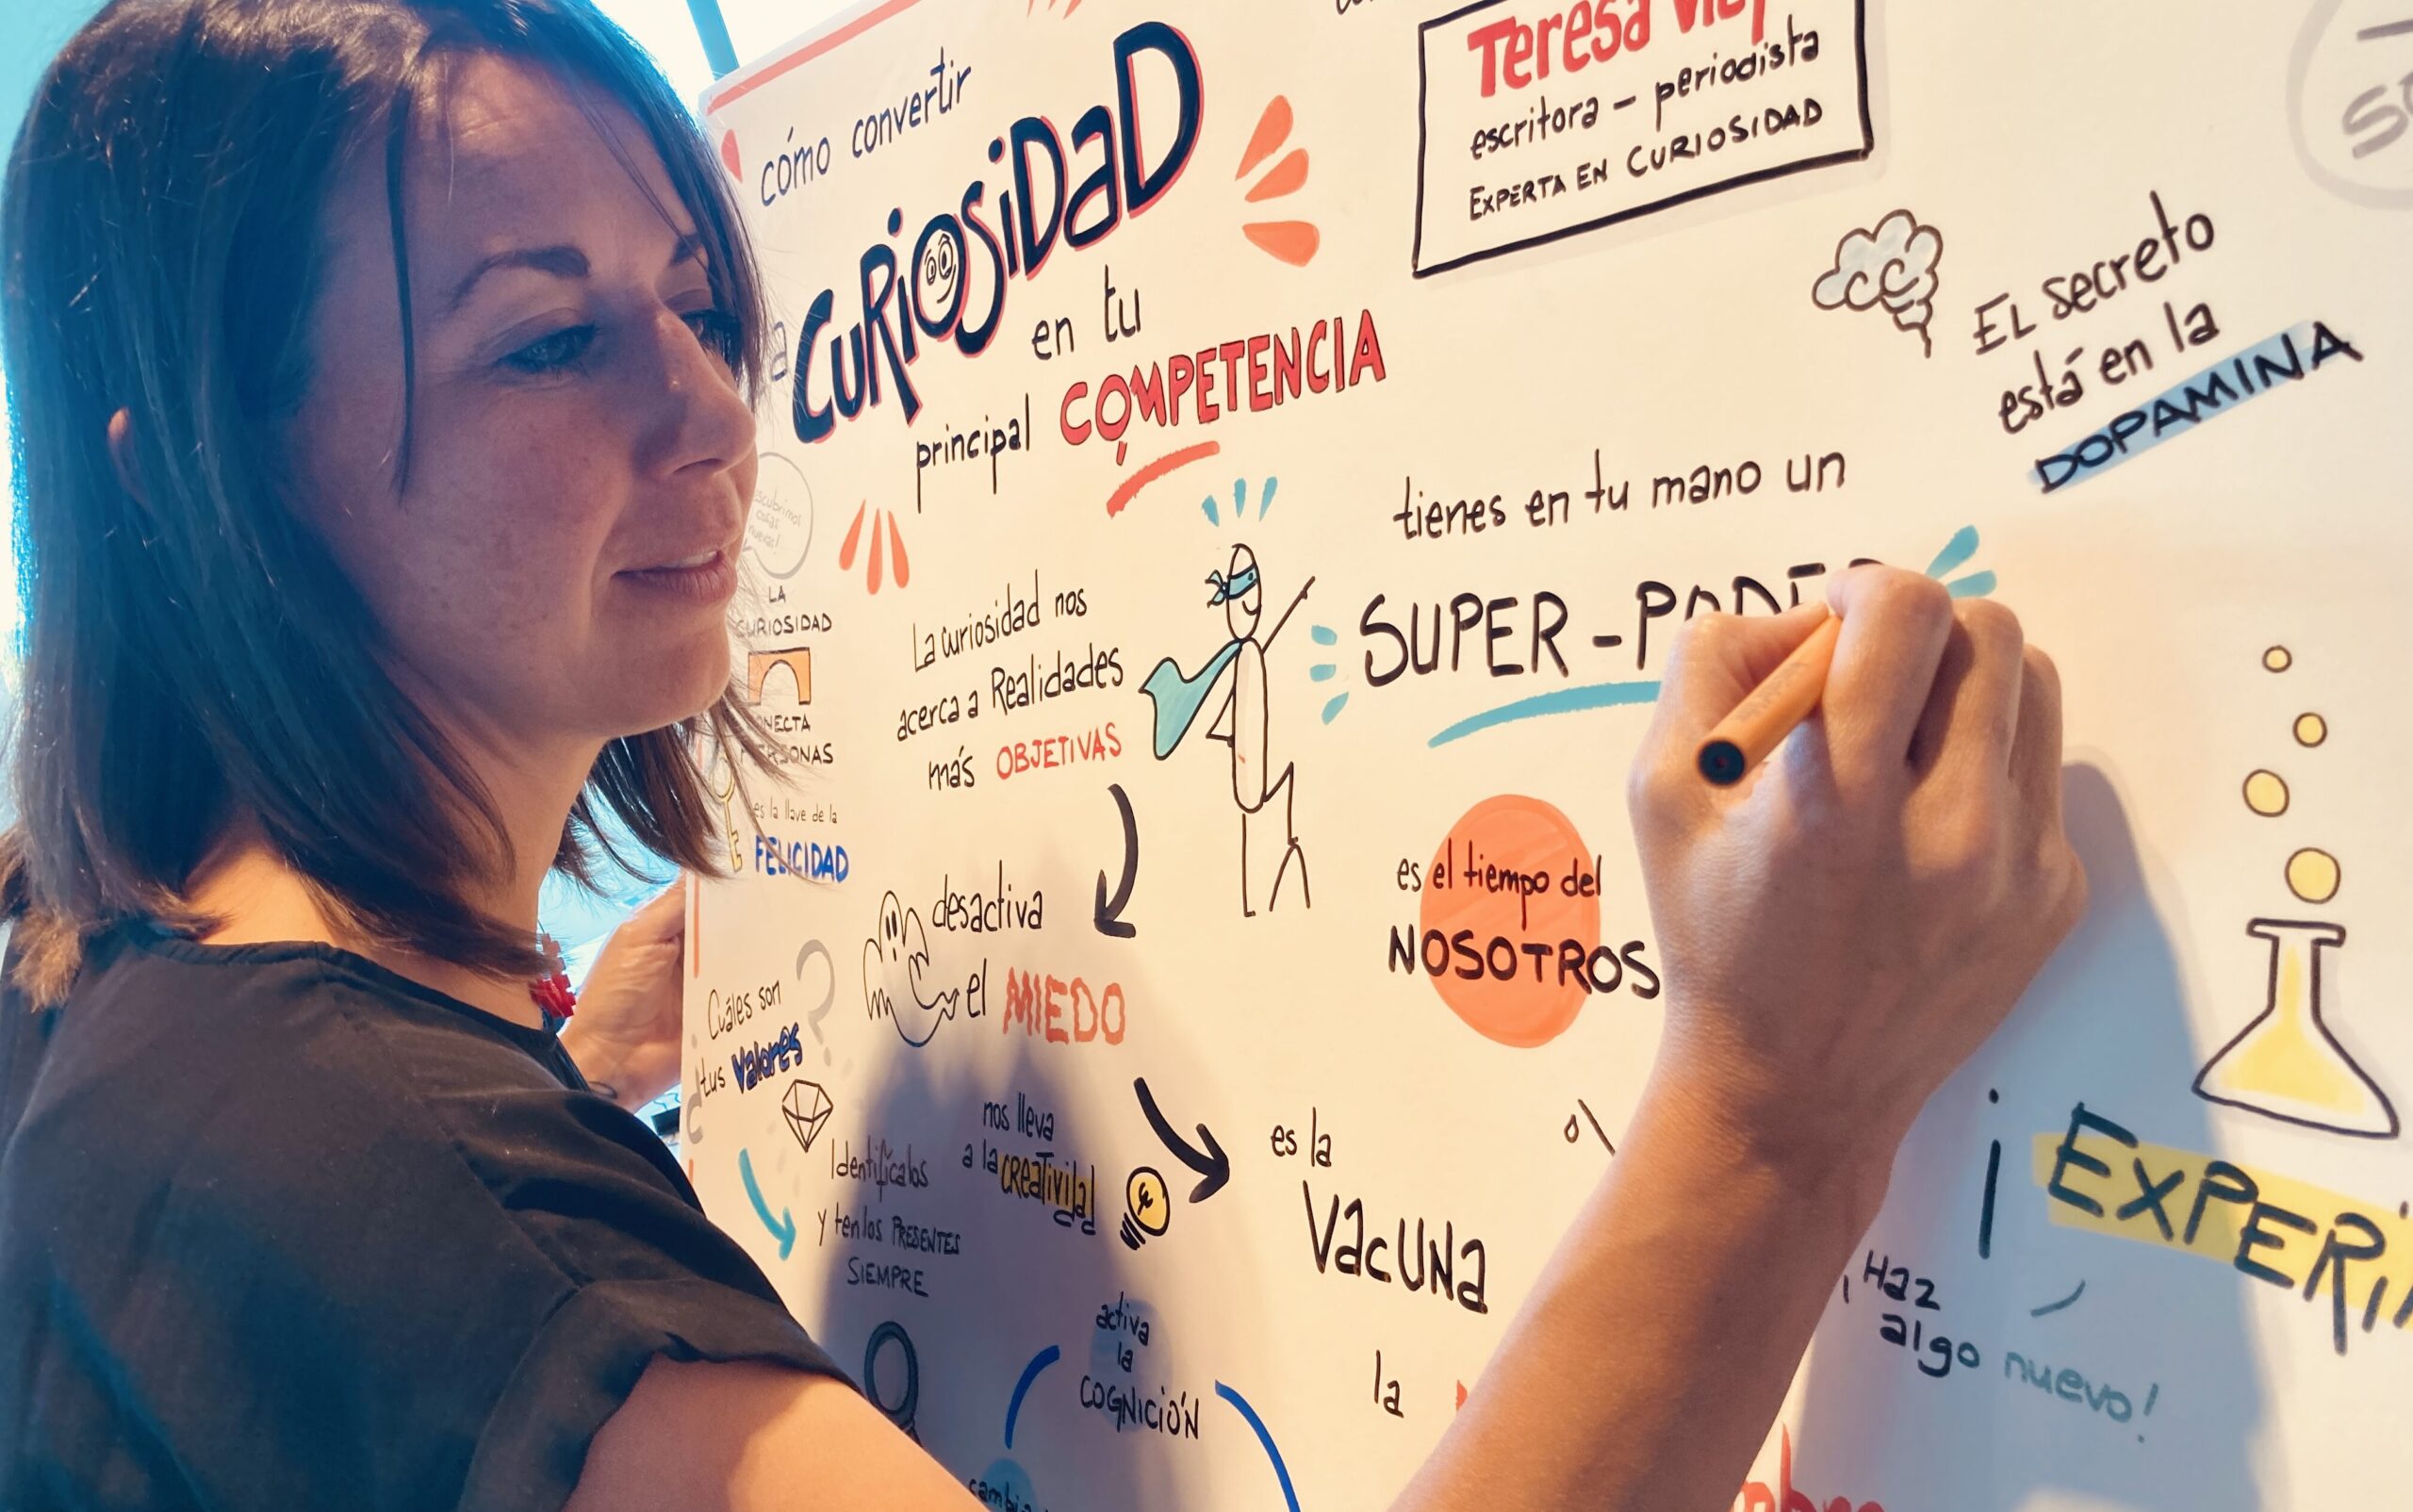 cómo convertir
a CURIOSIDAD
en tu
principal COMPETENCIA
Teresa
escritora – periodista
EXPERTA EN CURIOSIDAD
EL secreto
está en la
DOPAMINA
tienes en tu mano un
SUPER-PODER
cosas
LA
CURIOSIDAD
PERSONAS
es la llave de la
FELICIDAD
La curiosidad nos
acerca a Realidades
más OBJETIVAS
desactiva
el MIEDO
es el tiempo del
NOSOTROS
Cuáles son
tus Valores
?
Identifícalos
y tenlos PRESENTES
SIEMPRE
nos lleva
a la creatividad
es la
VACUNA
activa
la
COGNICIÓN
la
¡EXPERI
¡Haz
algo nuevo!